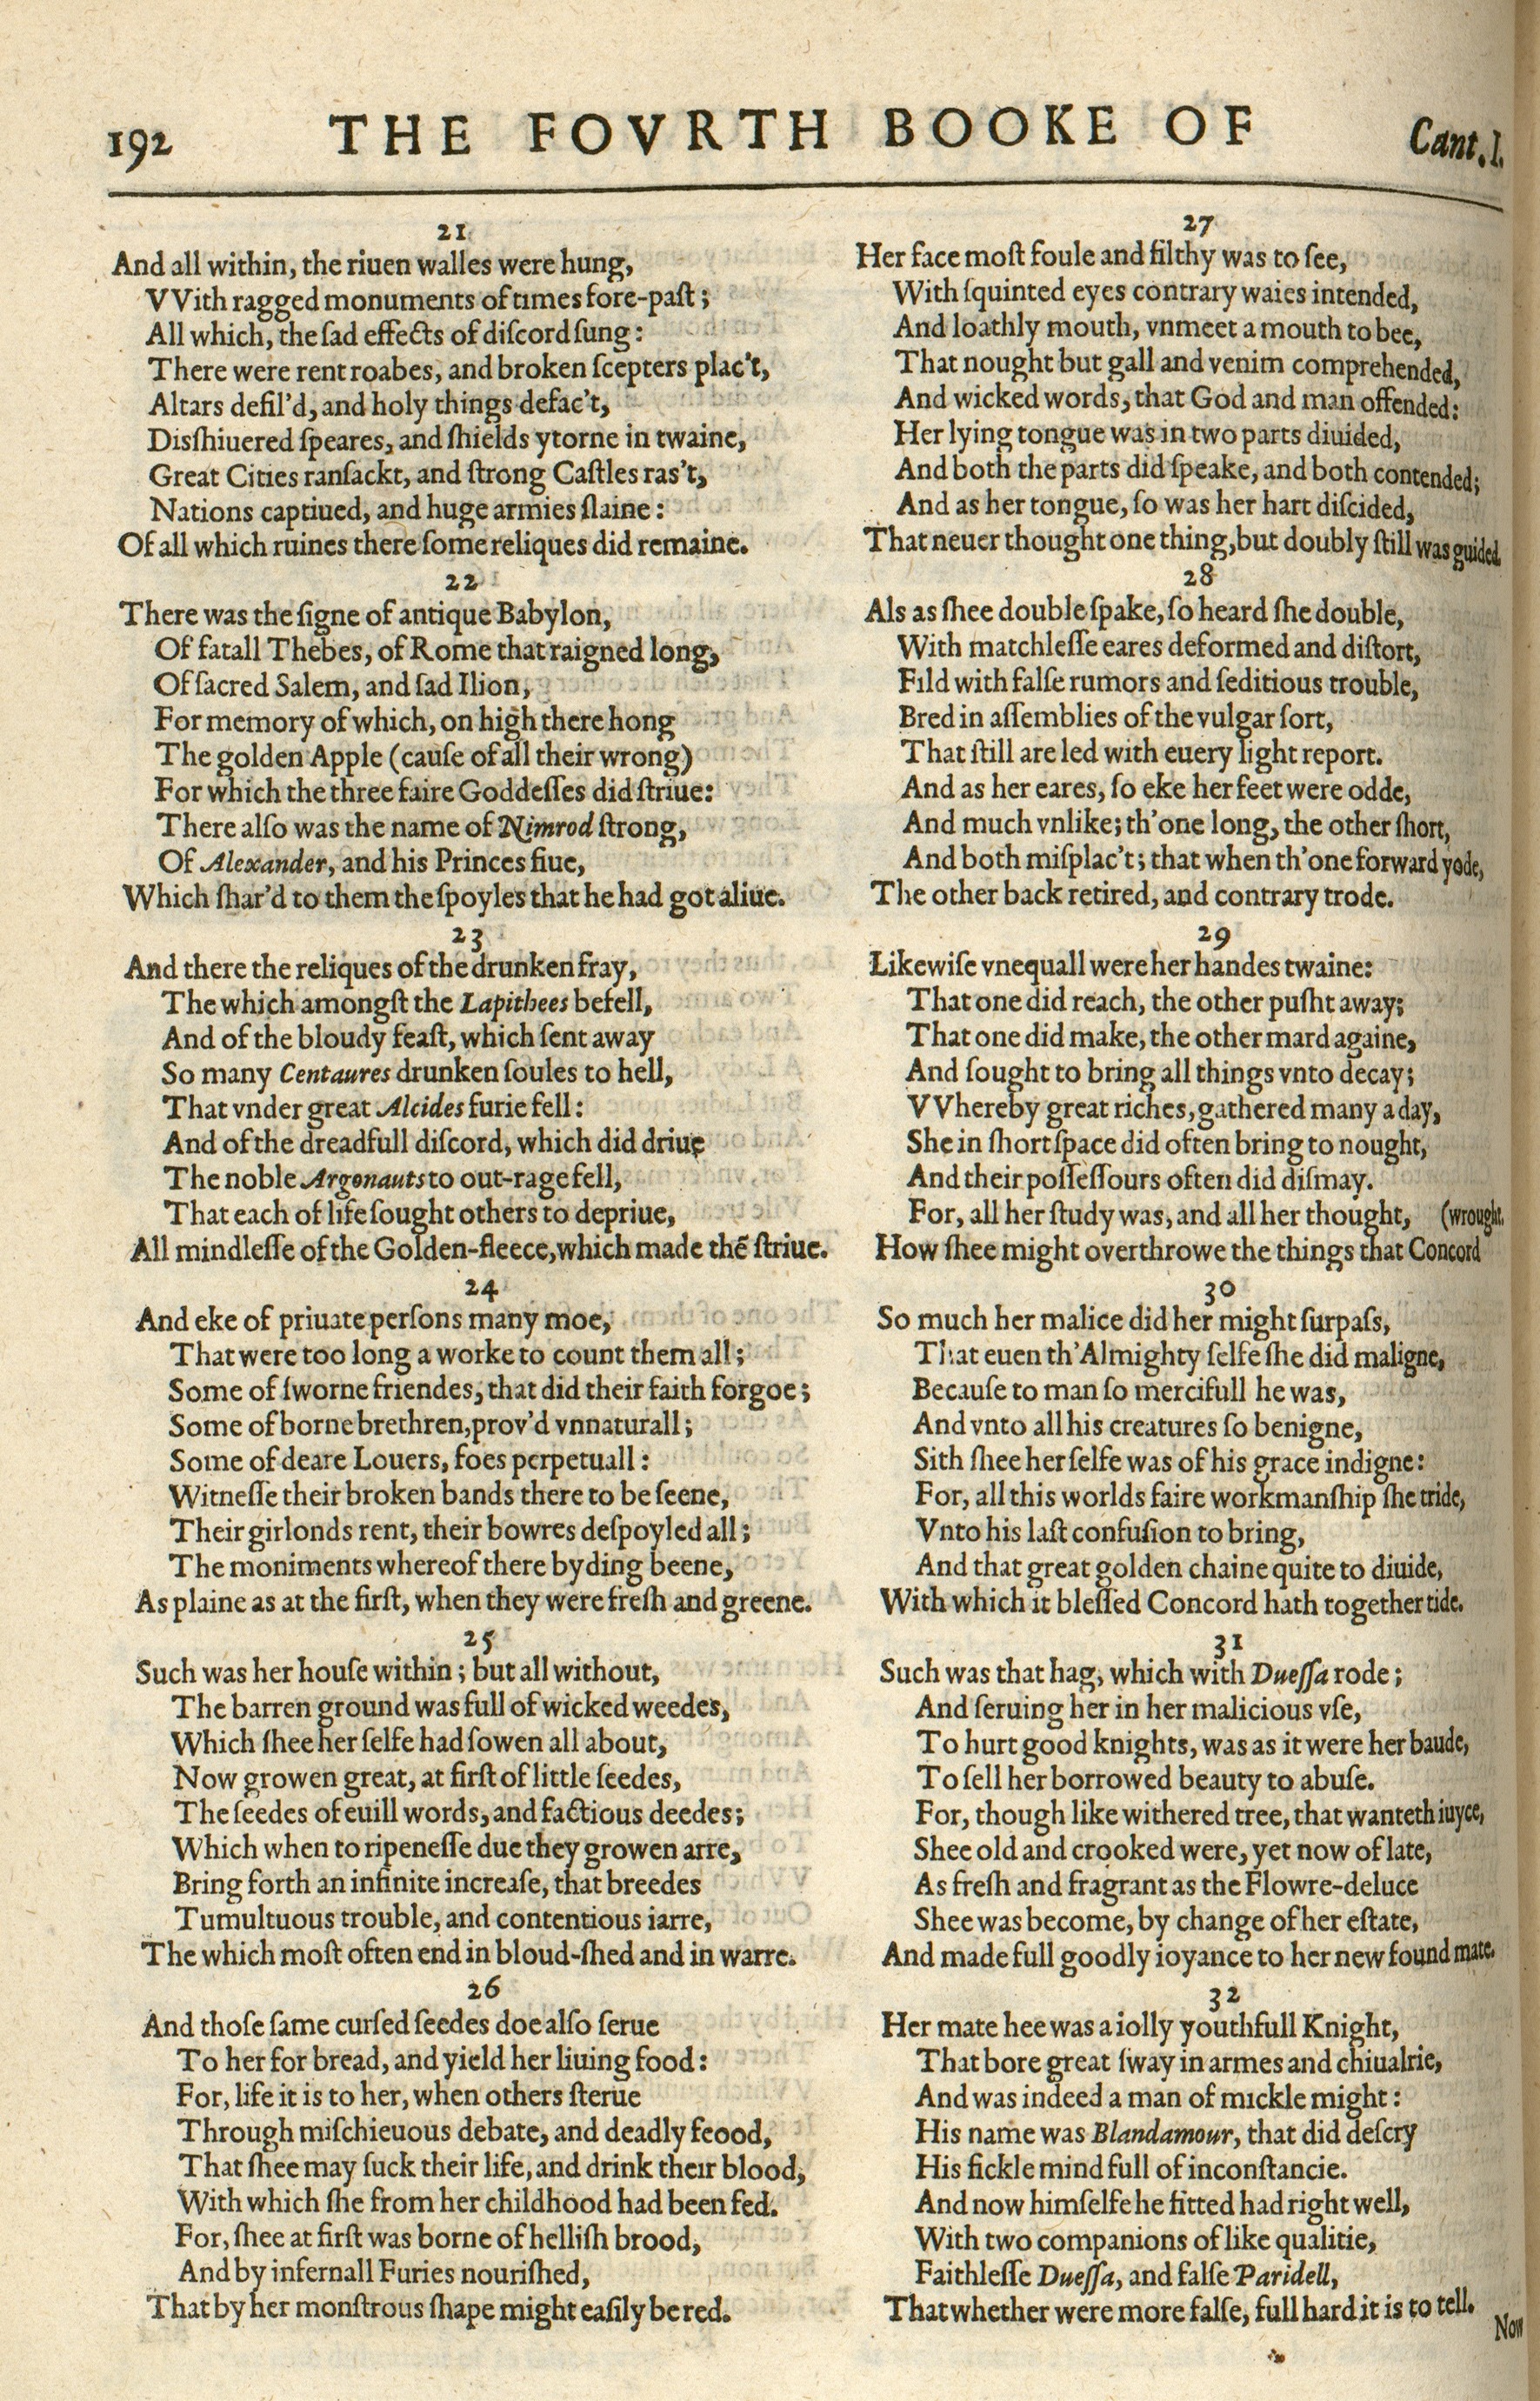 192
THE FOVRTH BOOKE OF
Cant. I.
21
And all within, the riuen walles were hung,
VVith ragged monuments of times fore-paſt;
All which, the ſad effects of diſcord ſung:
There were rent roabes, and broken ſcepters plac't,
Altars defil'd, and holy things defac't,
Disſhiuered ſpeares, and ſhields ytorne in twaine,
Great Cities ranſackt, and ſtrong Caſtles ras't,
Nations captiued, and huge armies ſlaine:
Of all which ruines there ſome reliques did remaine.
22
There was the ſigne of antique Babylon,
Of fatall Thebes, of Rome that raigned long,
Of ſacred Salem, and ſad Ilion,
For memory of which, on high there hong
The golden Apple (cauſe of all their wrong)
For which the three faire Goddeſſes did ſtriue:
There alſo was the name of Nimrod ſtrong,
Of Alexander, and his Princes fiue,
Which ſhar'd to them the ſpoyles that he had got aliue.
23
And there the reliques of the drunken fray,
The which amongſt the Lapithees befell,
And of the bloudy feaſt, which ſent away
So many Centaures drunken ſoules to hell,
That vnder great Alcides furie fell:
And of the dreadfull diſcord, which did driue
The noble Argonauts to out-rage fell,
That each of life ſought others to depriue,
All mindleſſe of the Golden-fleece, which made thē ſtriue.
24
And eke of priuate perſons many moe,
That were too long a worke to count them all;
Some of ſworne friendes, that did their faith forgoe;
Some of borne brethren, prov'd vnnaturall;
Some of deare Louers, foes perpetuall:
Witneſſe their broken bands there to be ſeene,
Their girlonds rent, their bowres deſpoyled all;
The moniments whereof there byding beene,
As plaine as at the firſt, when they were freſh and greene.
25
Such was her houſe within; but all without,
The barren ground was full of wicked weedes,
Which ſhee her ſelfe had ſowen all about,
Now growen great, at firſt of little ſeedes,
The ſeedes of euill words, and factious deedes;
Which when to ripeneſſe due they growen arre,
Bring forth an infinite increaſe, that breedes
Tumultuous trouble, and contentious iarre,
The which moſt often end in bloud-ſhed and in warre.
26
And thoſe ſame curſed ſeedes doe alſo ſerue
To her for bread, and yield her liuing food:
For, life it is to her, when others ſterue
Through miſchieuous debate, and deadly feood,
That ſhee may ſuck their life, and drink their blood,
With which ſhe from her childhood had been fed.
For, ſhee at firſt was borne of helliſh brood,
And by infernall Furies nouriſhed,
That by her monſtrous ſhape might eaſily be red.
27
Her face moſt foule and filthy was to ſee,
With ſquinted eyes contrary waies intended,
And loathly mouth, vnmeet a mouth to bee,
That nought but gall and venim comprehended,
And wicked words, that God and man offended:
Her lying tongue was in two parts diuided,
And both the parts did ſpeake, and both contended;
And as her tongue, ſo was her hart diſcided,
That neuer thought one thing, but doubly ſtill was guided.
28
Als as ſhee double ſpake, ſo heard ſhe double,
With matchleſſe eares deformed and diſtort,
Fild with falſe rumors and ſeditious trouble,
Bred in aſſemblies of the vulgar ſort,
That ſtill are led with euery light report.
And as her eares, ſo eke her feet were odde,
And much vnlike; th'one long, the other ſhort,
And both miſplac't; that when th'one forward yode,
The other back retired, and contrary trode.
29
Likewiſe vnequall were her handes twaine:
That one did reach, the other puſht away;
That one did make, the other mard againe,
And ſought to bring all things vnto decay;
VVhereby great riches, gathered many a day,
She in ſhort ſpace did often bring to nought,
And their poſſeſſours often did diſmay.
For, all her ſtudy was, and all her thought, (wrought.
How ſhee might overthrowe the things that Concord
30
So much her malice did her might ſurpaſs,
That euen th'Almighty ſelfe ſhe did maligne,
Becauſe to man ſo mercifull he was,
And vnto all his creatures ſo benigne,
Sith ſhee her ſelfe was of his grace indigne:
For, all this worlds faire workmanſhip ſhe tride,
Vnto his laſt confuſion to bring,
And that great golden chaine quite to diuide,
With which it bleſſed Concord hath together tide.
31
Such was that hag, which with Dueſſa rode;
And ſeruing her in her malicious vſe,
To hurt good knights, was as it were her baude,
To ſell her borrowed beauty to abuſe.
For, though like withered tree, that wanteth iuyce,
Shee old and crooked were, yet now of late,
As freſh and fragrant as the Flowre-deluce
Shee was become, by change of her eſtate,
And made full goodly ioyance to her new found mate.
32
Her mate hee was a iolly youthfull Knight,
That bore great ſway in armes and chiualrie,
And was indeed a man of mickle might:
His name was Blandamour, that did deſcry
His fickle mind full of inconſtancie.
And now himſelfe he fitted had right well,
With two companions of like qualitie,
Faithleſſe Dueſſa, and falſe Paridell,
That whether were more falſe, full hard it is to tell.
Now